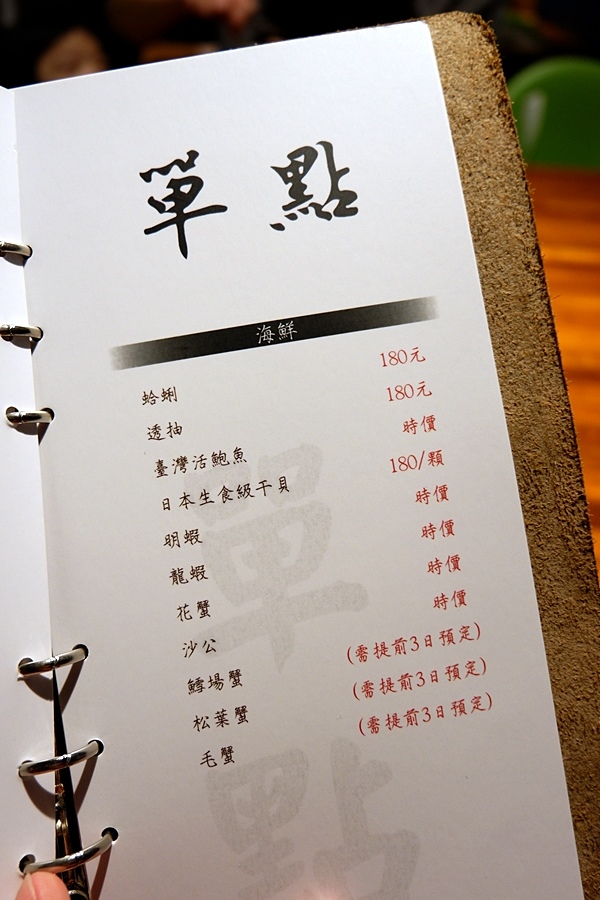 單點
海鮮
蛤蜊 180元
透抽 180元
臺灣活鮑魚 時價
日本生食級干貝 180/顆
明蝦 時價
龍蝦 時價
花蟹 時價
沙公 時價
鱈場蟹 (需提前3日預定)
松葉蟹 (需提前3日預定)
毛蟹 (需提前3日預定)
單
點